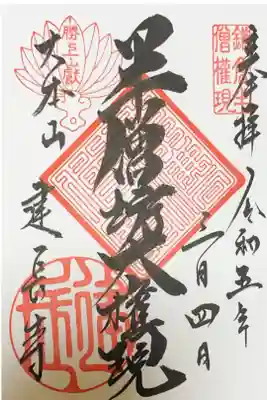 奉拝 令和五年
鎌倉半
僧權現
三月四日
半僧坊大権現
勝上嶽
大本山 建長寺